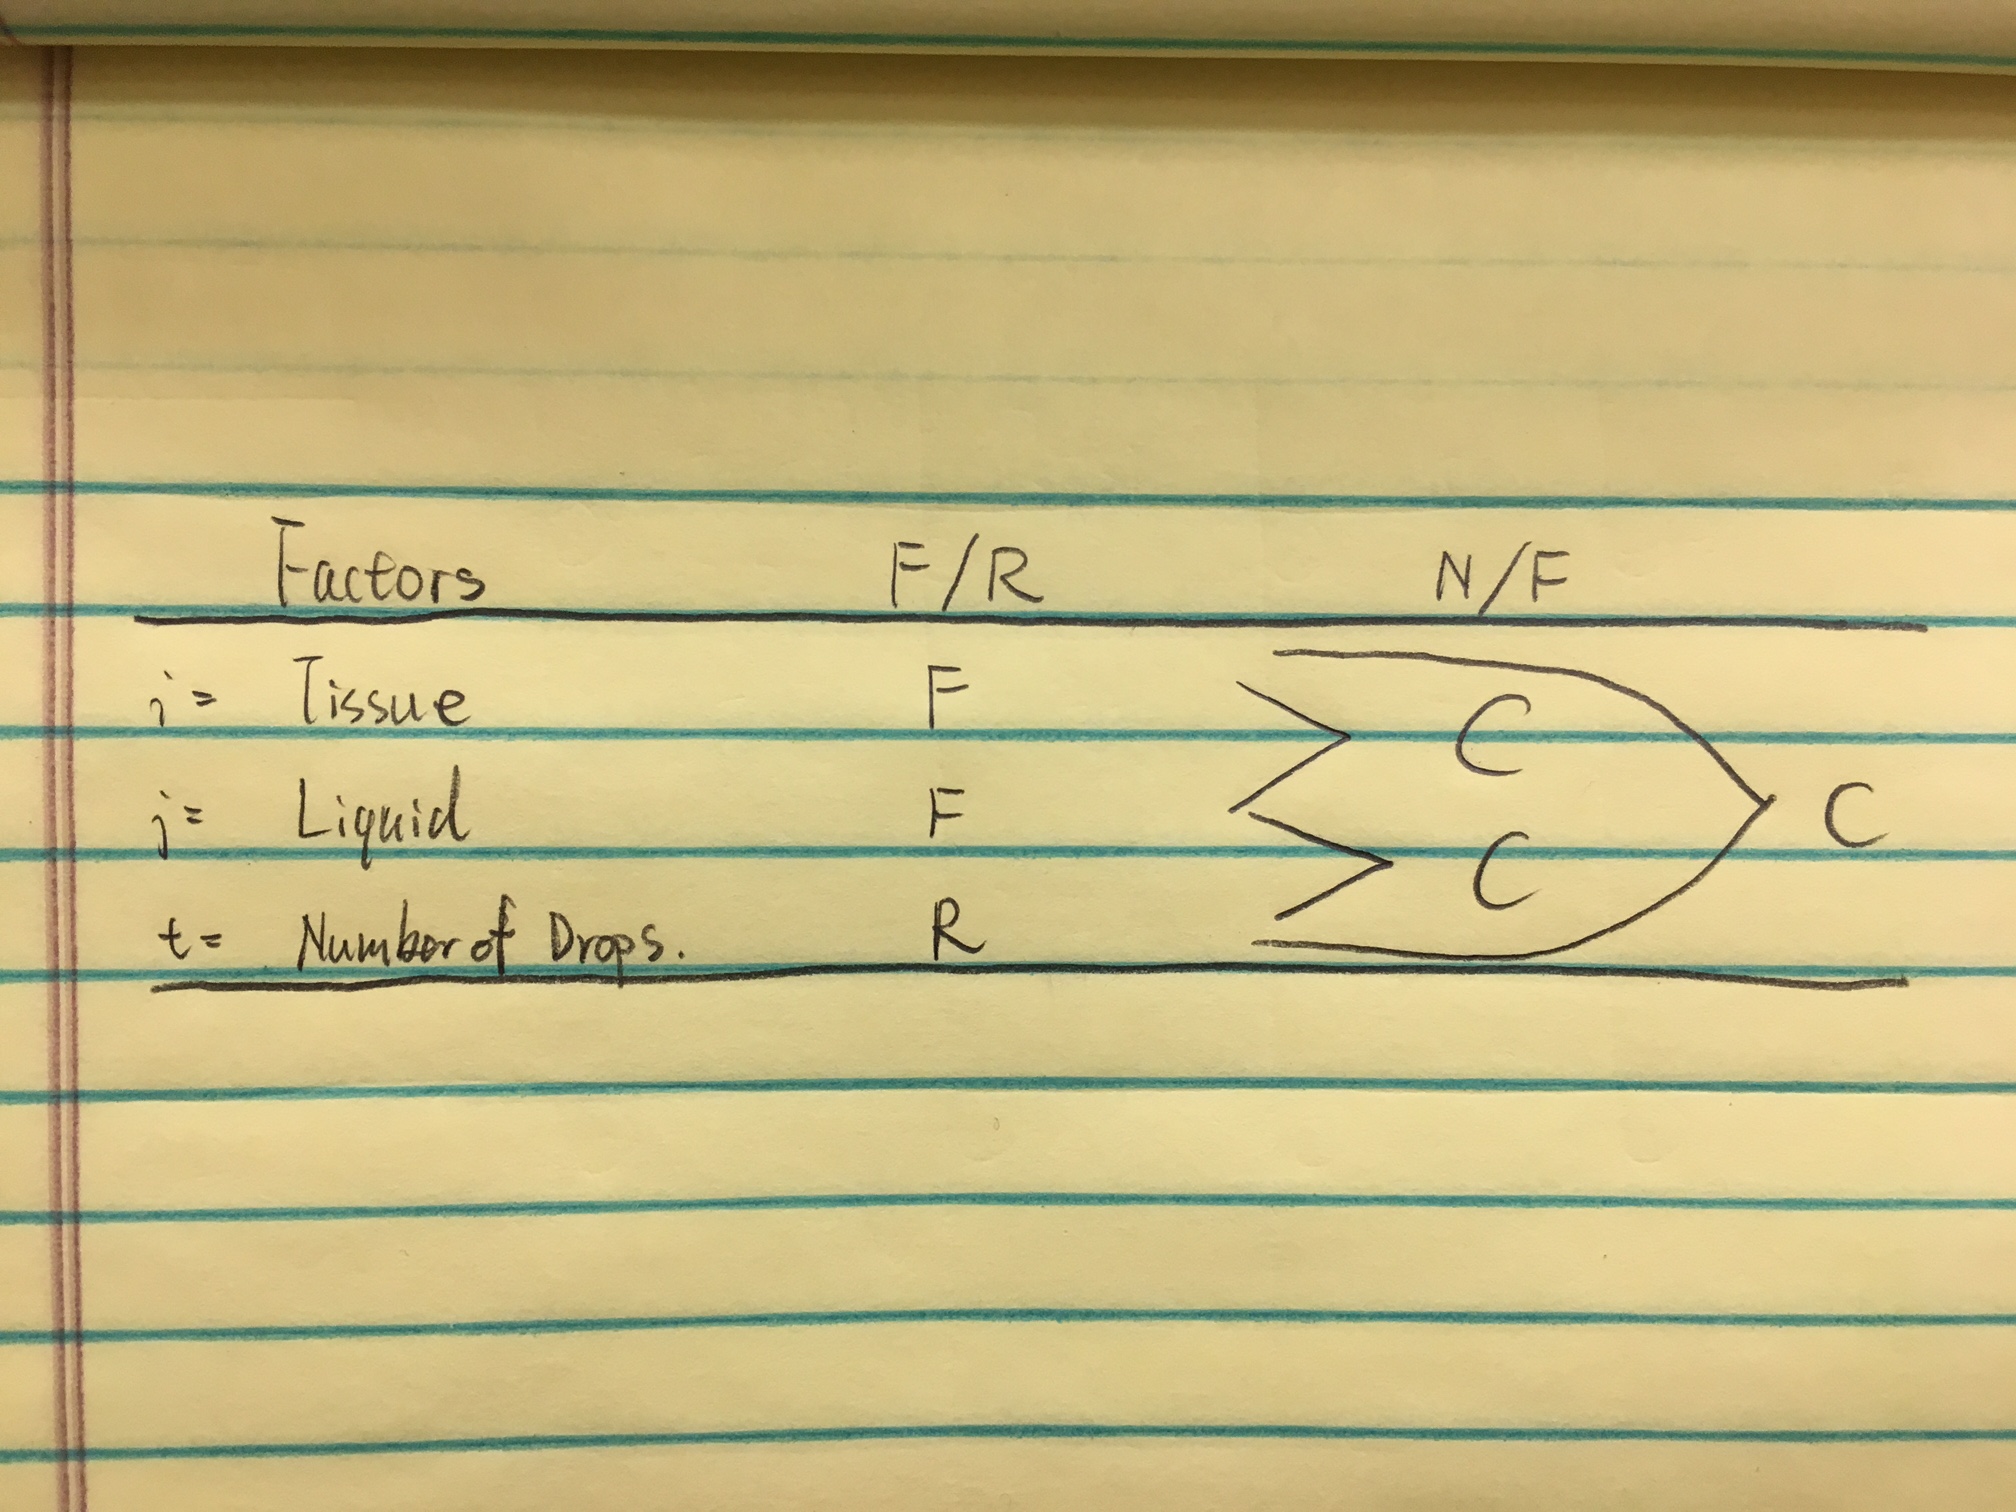 Factors F/R N/F
i = Tissue F C
j = Liquid F C C
t = Number of Drops. R